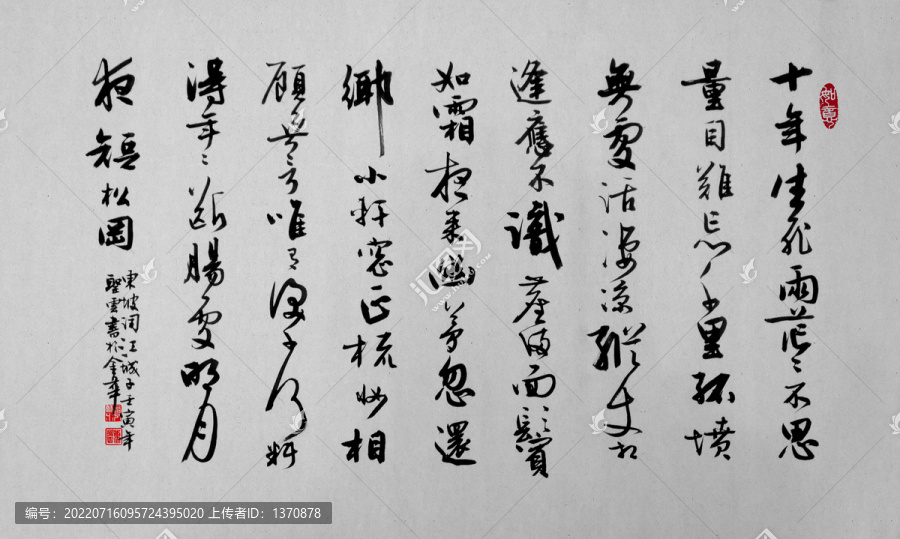 如意
十年生死兩茫〻不思
量自難忘千里孤墳
無處話淒涼縱使相
逢應不識塵滿面鬢
如霜夜來幽夢忽還
鄉小軒窗正梳妝相
顧無言唯有淚千行料
得年〻斷腸處明月
夜短松岡
東坡詞江城子壬寅年
聖雲書於金華
编号：20220716095724395020 上传者ID：1370878